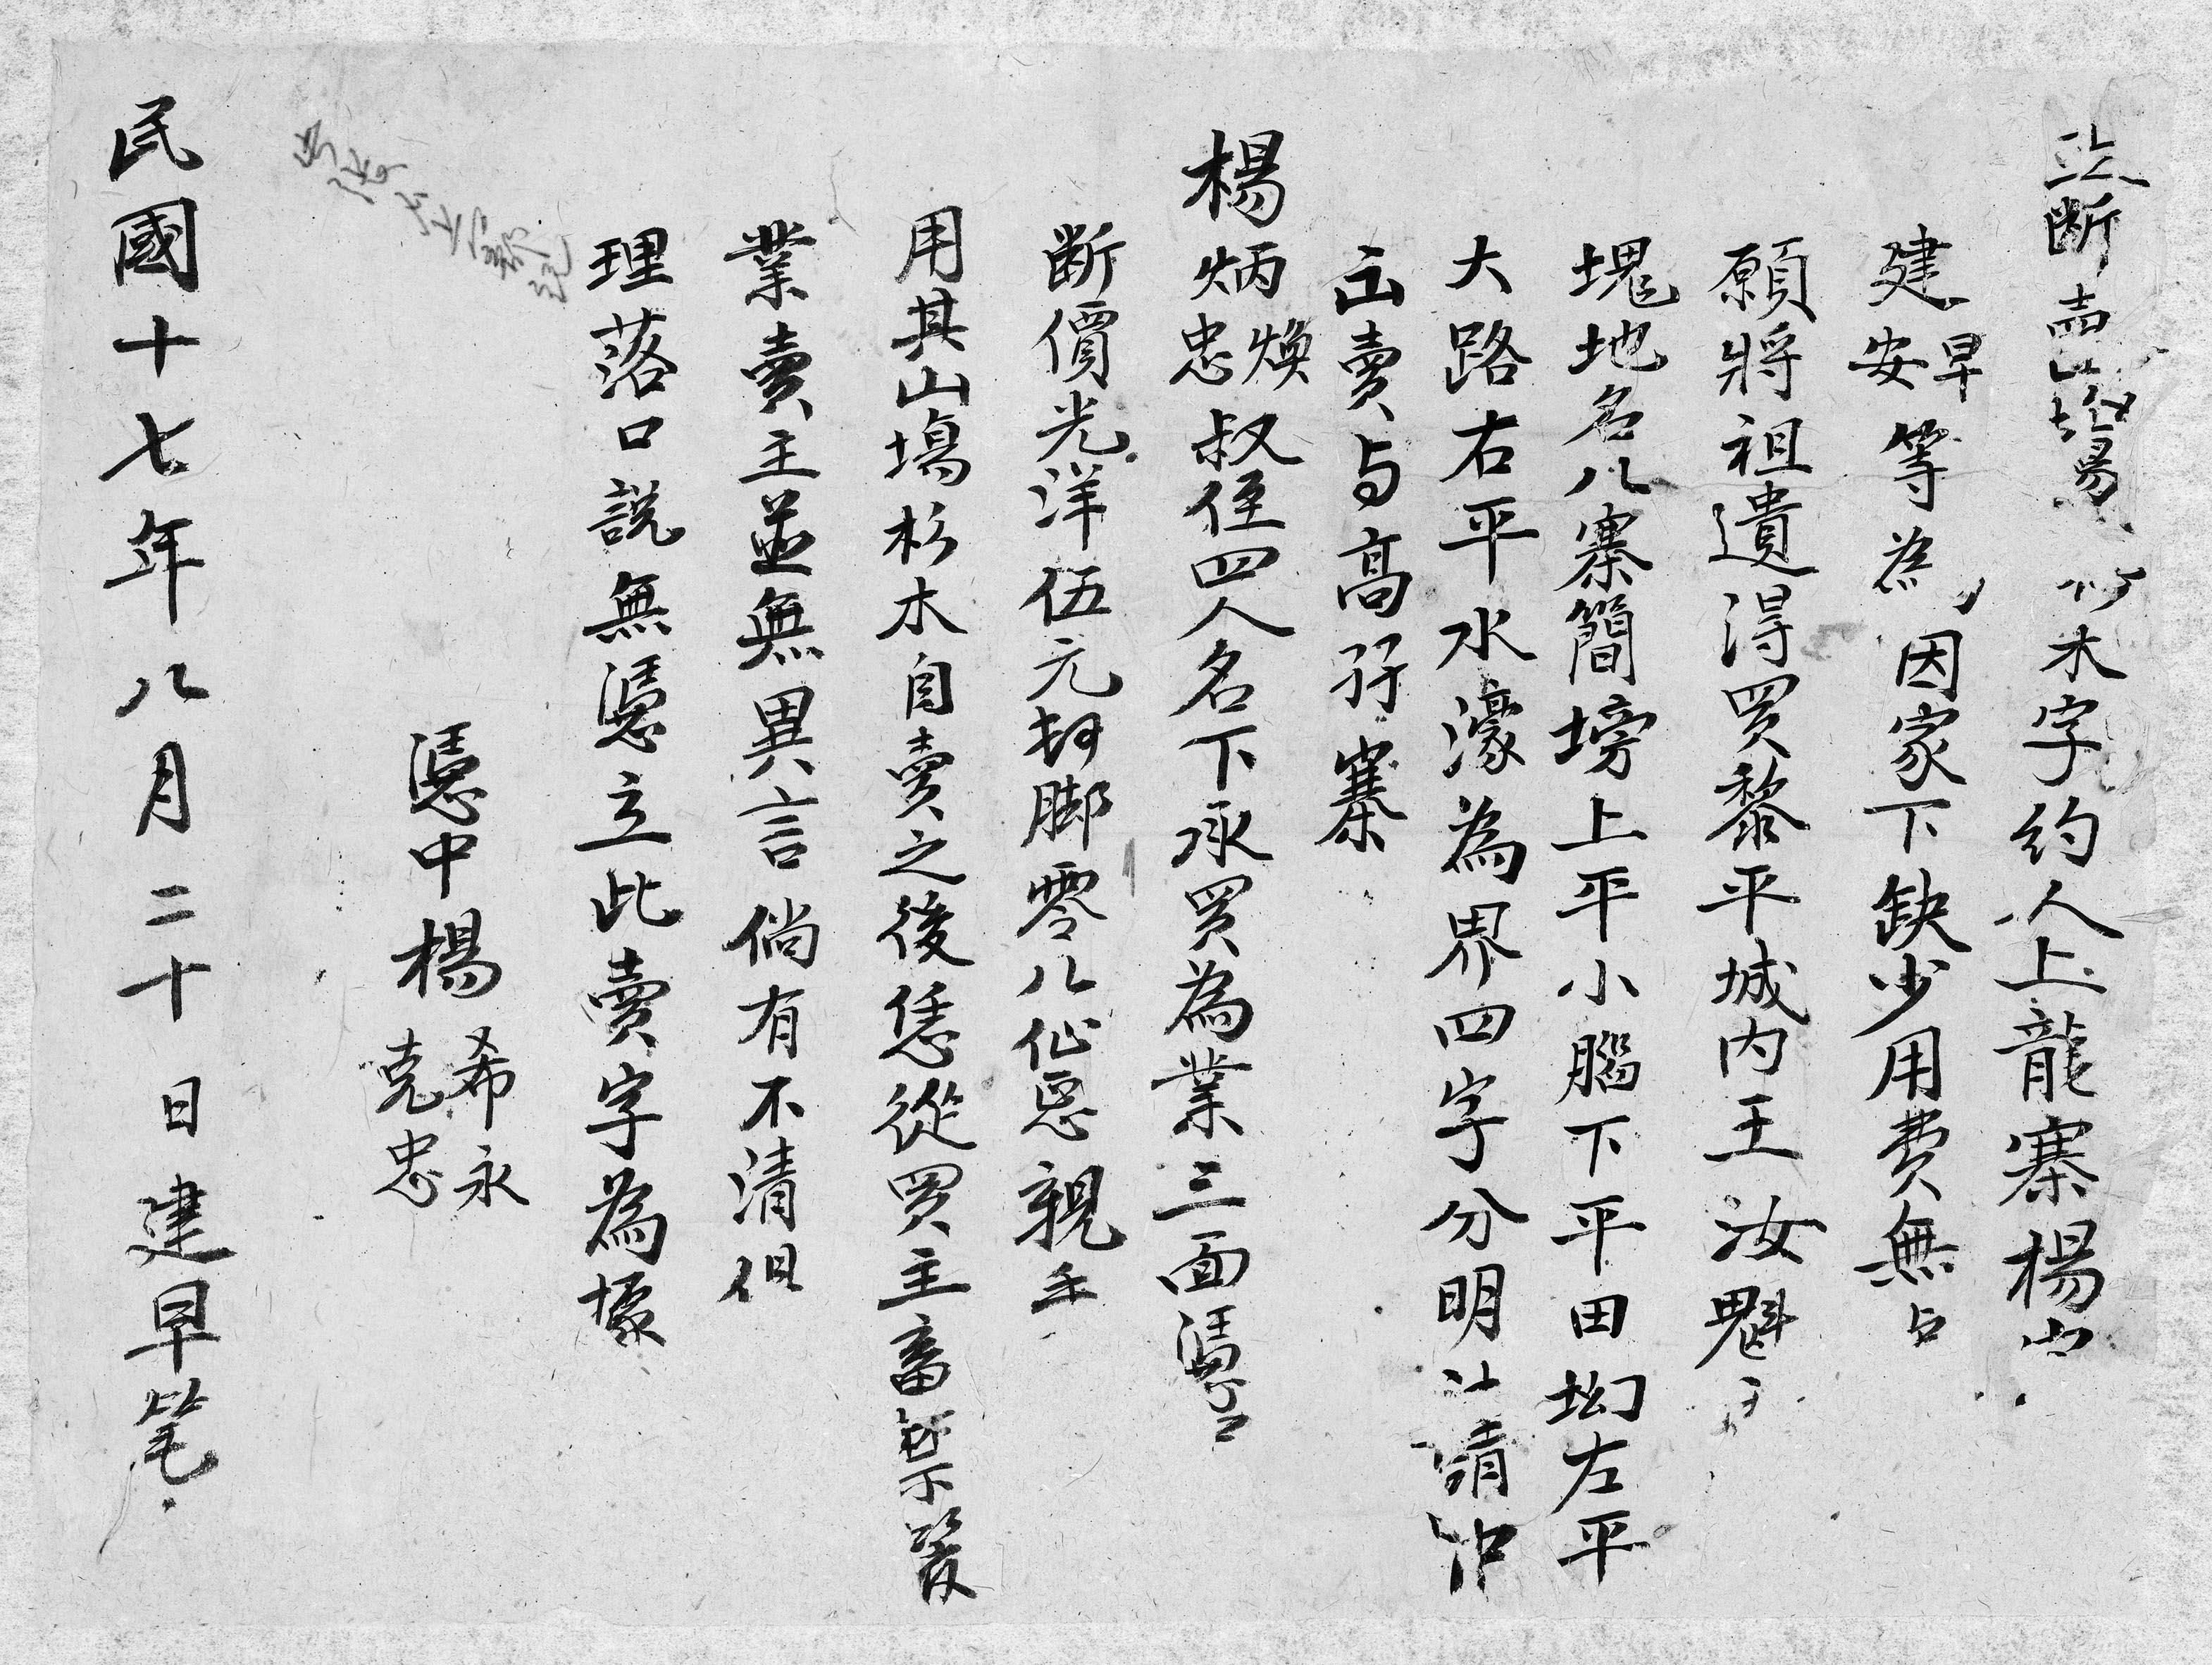 立斷賣山塲杉木字約人上龍寨楊
建早安等為因家下缺少用費無
願將祖遺得買黎平城内王汝魁
塊地名八寨簡塝上平小腦下平田坳左平
大路右平水濠為界四字分明請中
出賣与高孖寨
楊炳煥忠叔侄四人名下承買為業三面憑
斷價光洋伍元 脚零八仙 親手
用其山塲杉木自賣之後恁從買主畜禁
業賣主並無異言倘有不清但
理落口説無憑立此賣字為據
憑中楊希永克忠
民國十七年八月二十日建早笔